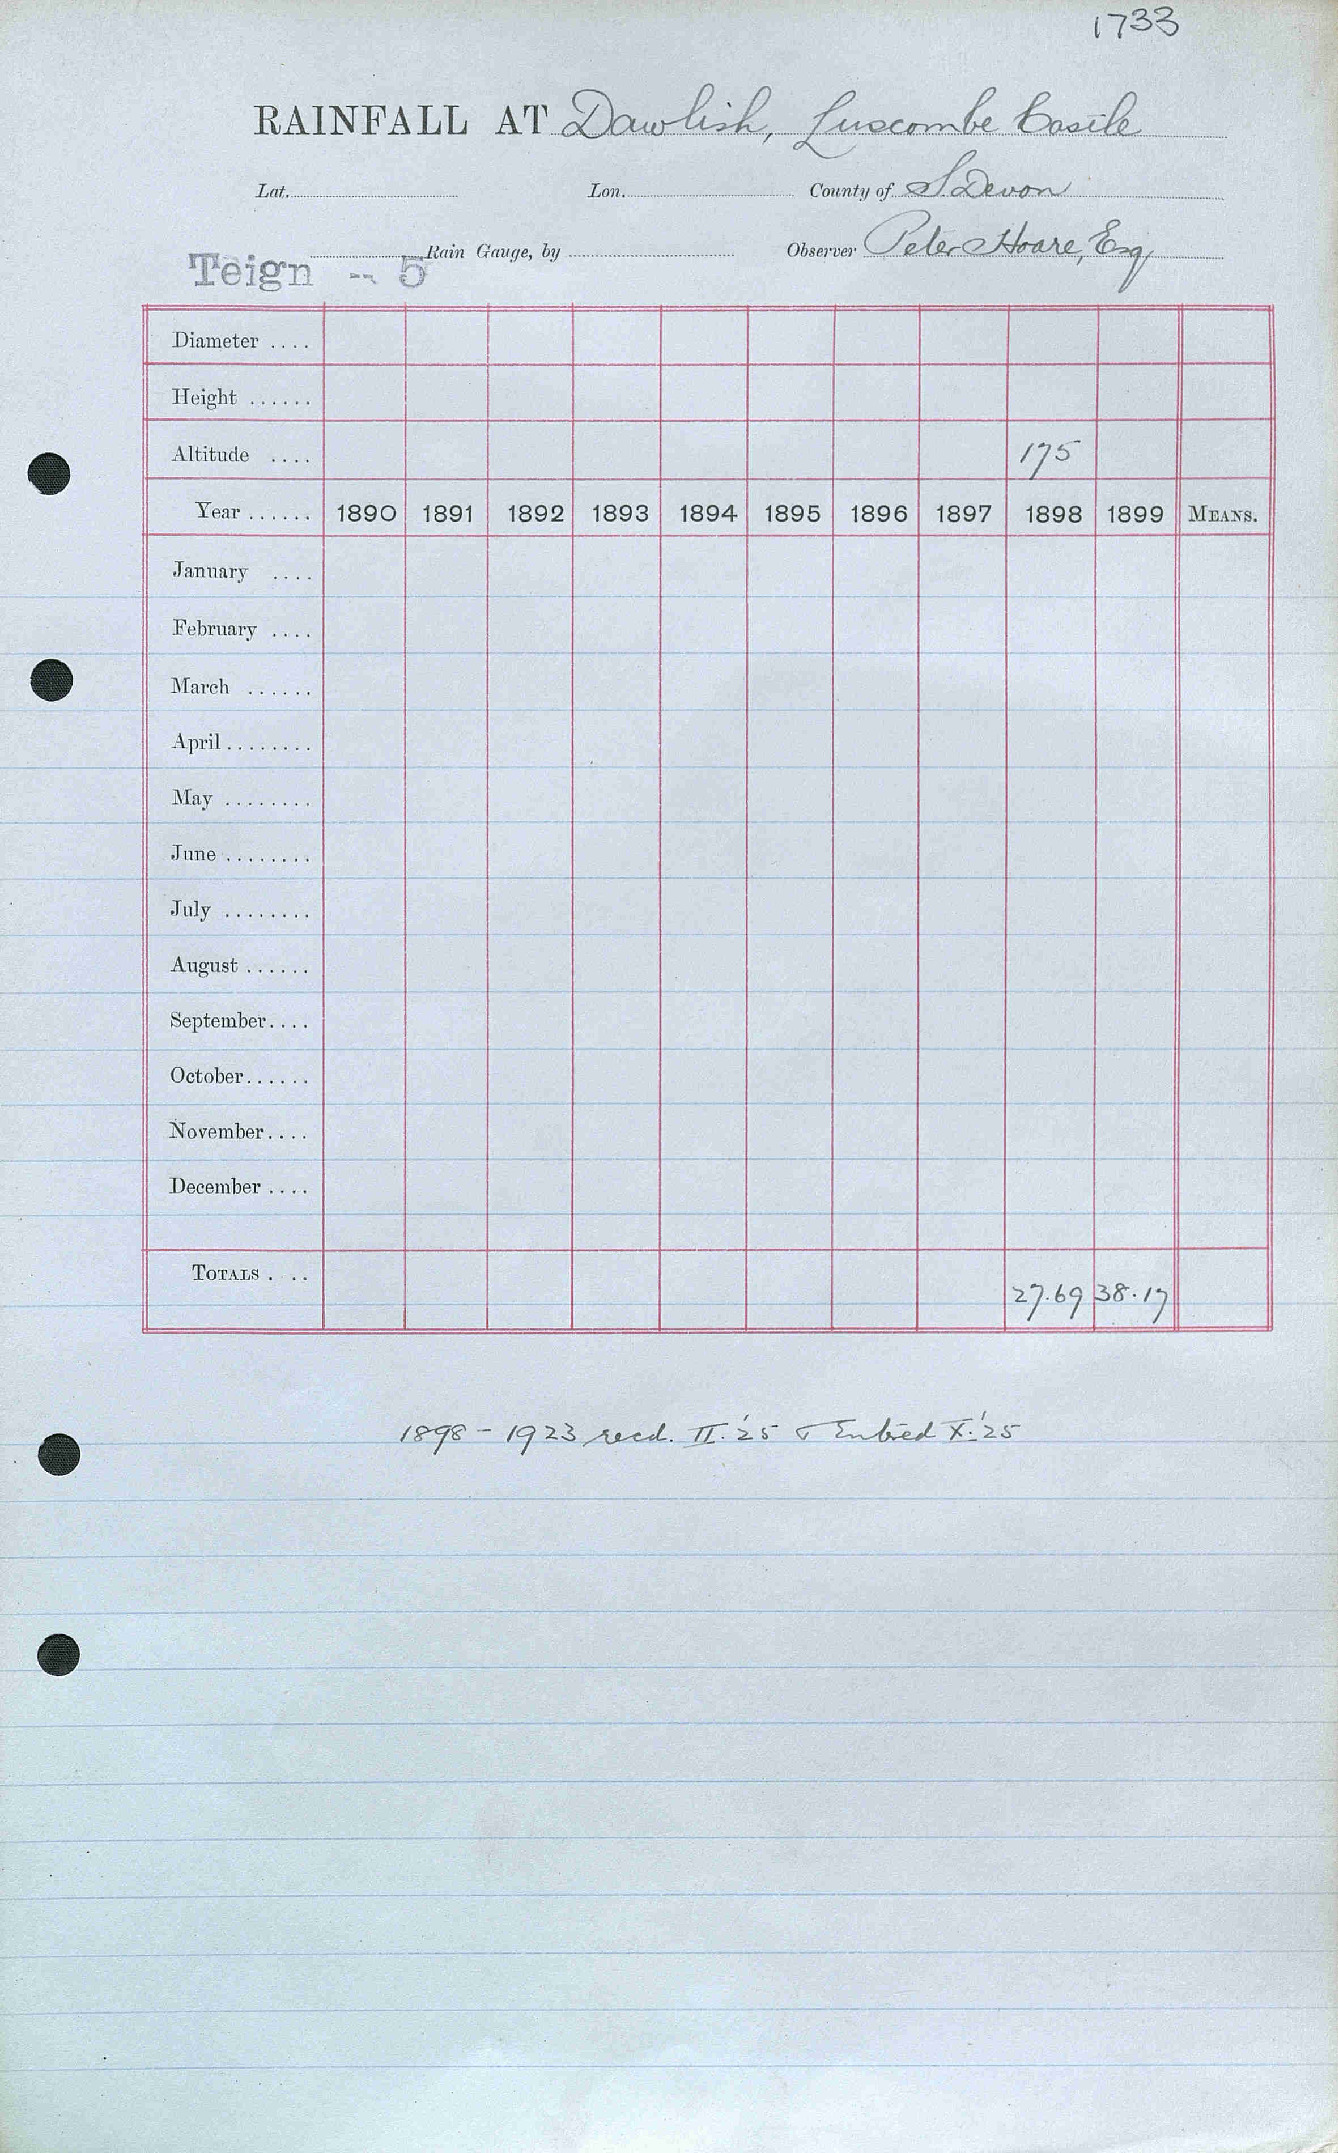 1733
RAINFALL AT Dawlish, Luscombe Castle
Lat. Lon. County of S Devon
Rain Gauge, by Observer Peter Hoare, Esq
Teign -- 5
Diameter ....
Height ......
Altitude .... 175
Year ...... 1890 1891 1892 1893 1894 1895 1896 1897 1898 1899 MEANS.
January ....
February ....
March ......
April ........
May ........
June ........
July ........
August ......
September....
October......
November....
December ....
TOTALS . .. 27.69 38.17
1898 - 1923 recd. II.'25 & Entred X.'25